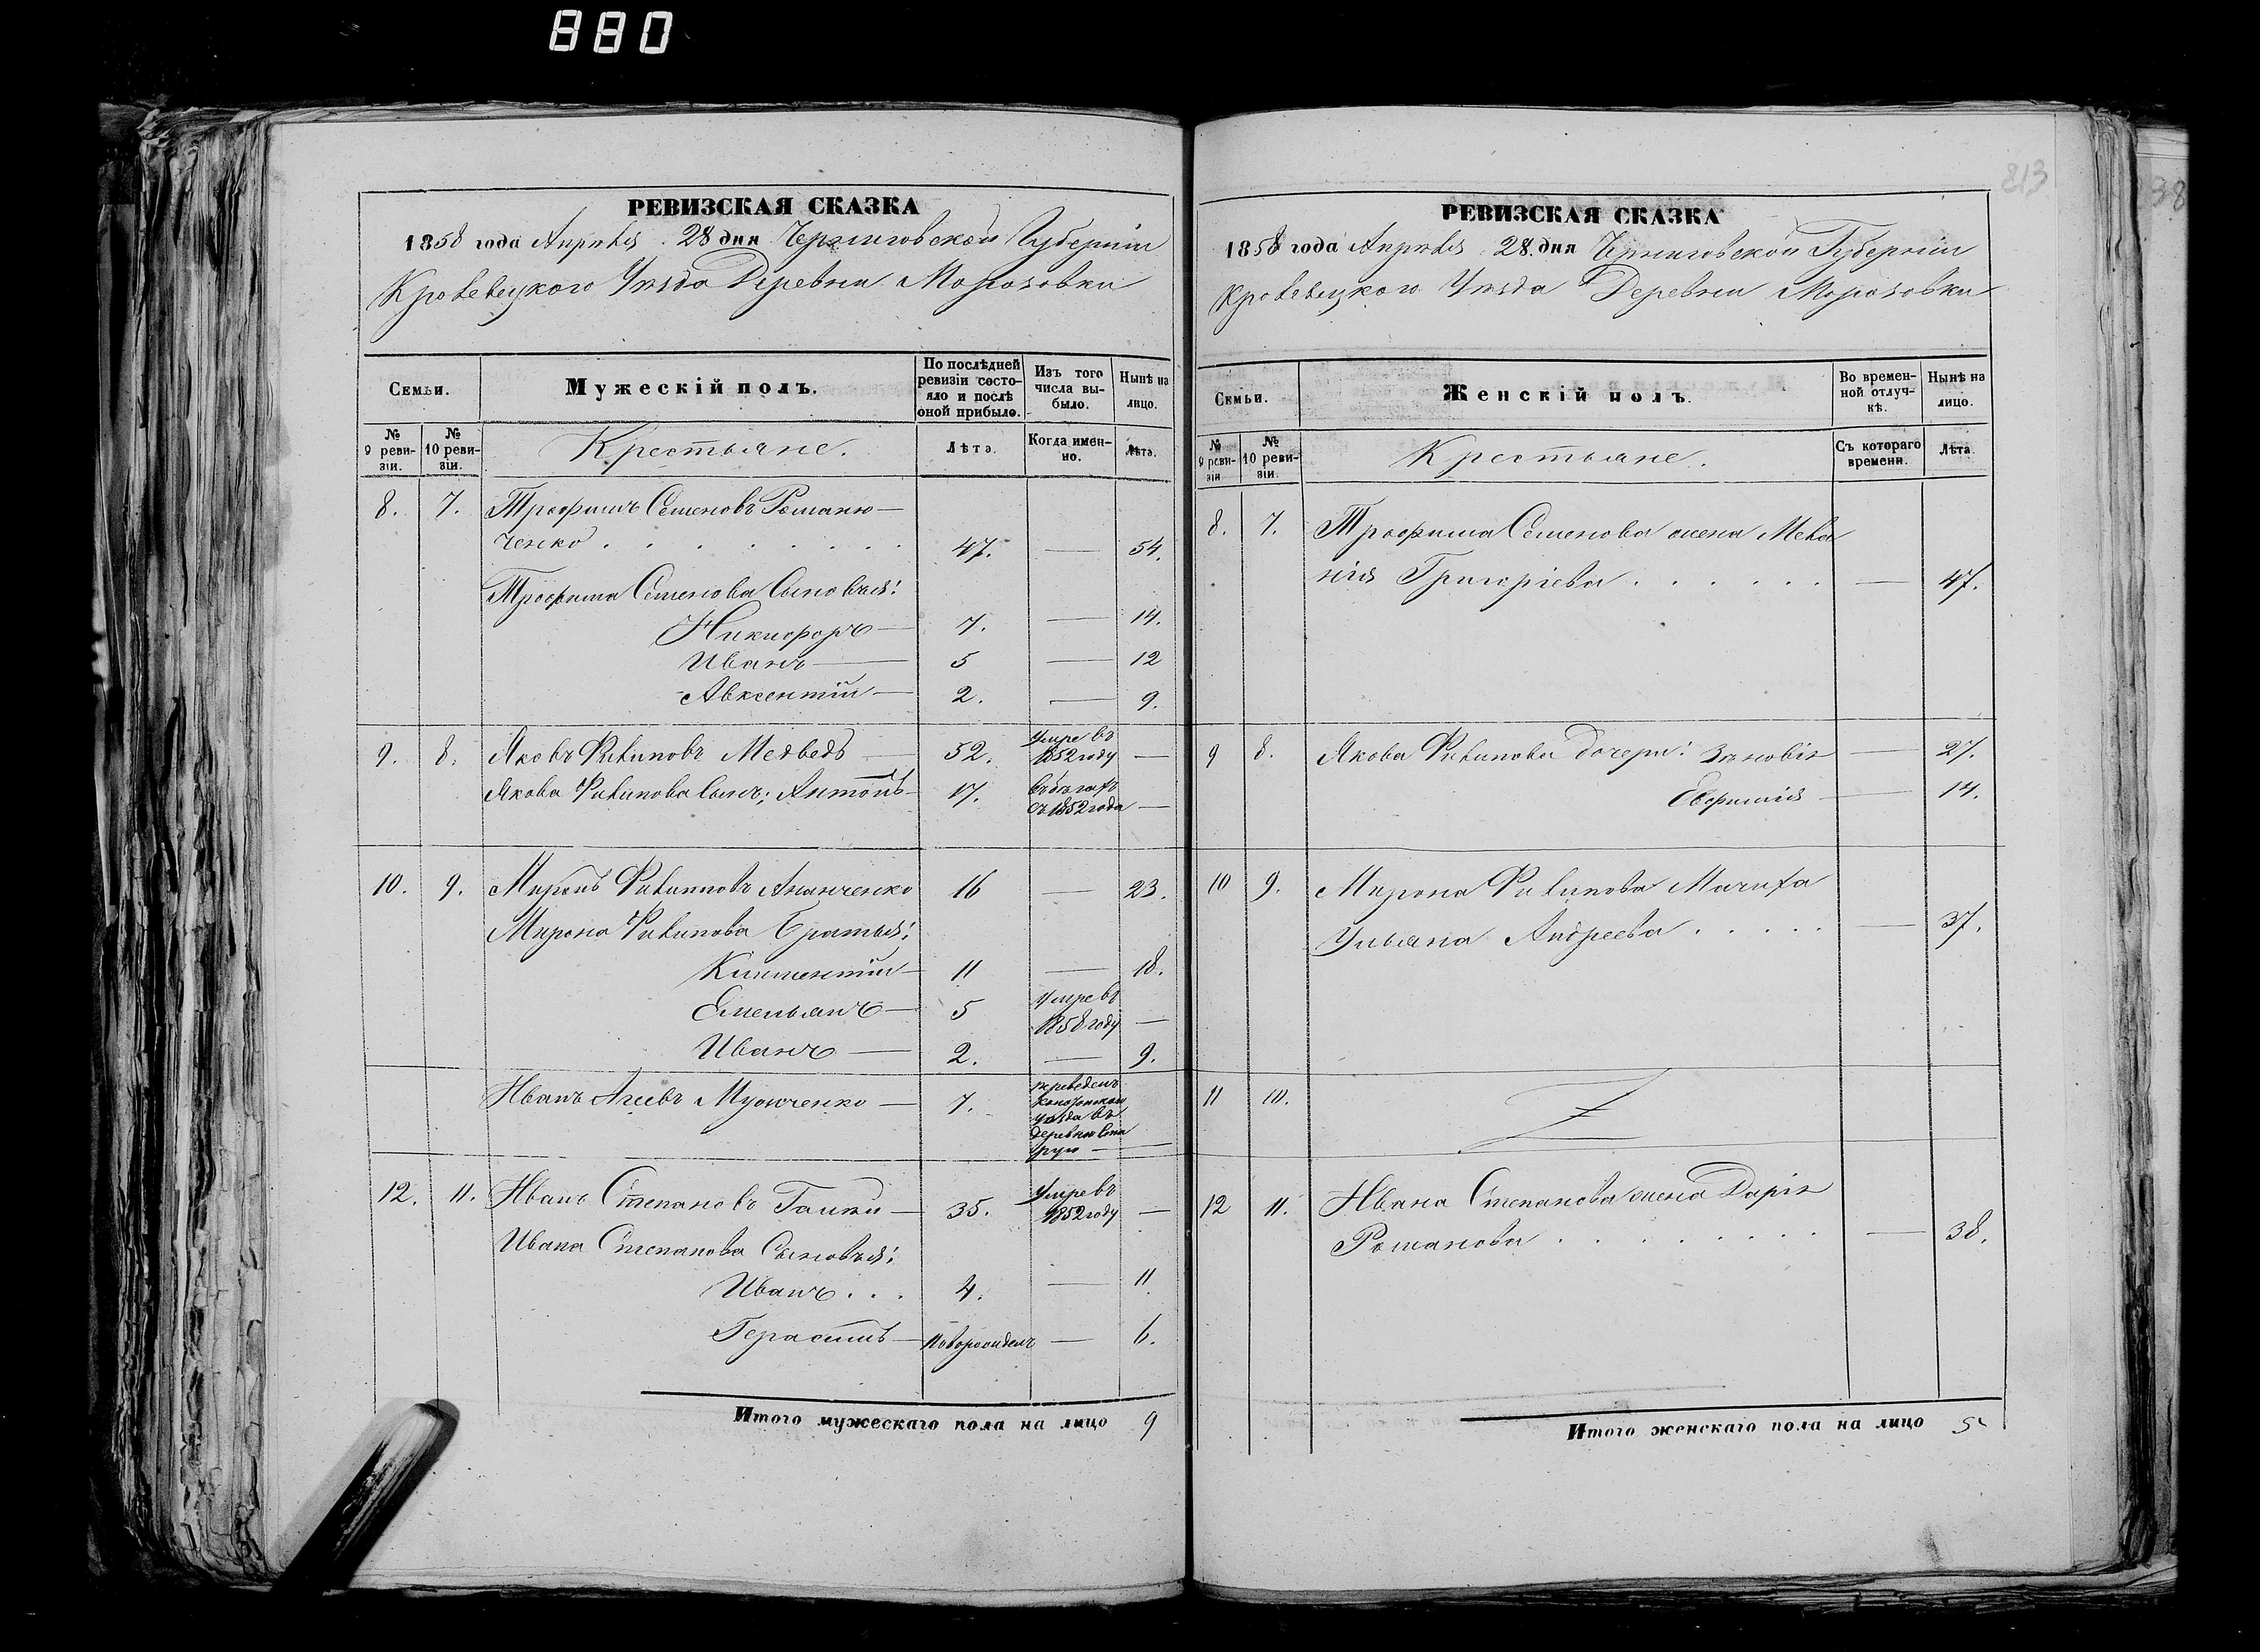 880
213
38
РЕВИЗСКАЯ СКАЗКА
1858 года Апрѣля 28 дня Черниговской Губерніи
Кролевецкого Уѣзда Деревни Морозовки
Семьи.
Мужескій полъ.
По послѣдней ревизіи состояло и послѣ оной прибыло.
Изъ того числа выбыло.
Нынѣ на лицо.
№ 9 ревизіи.
№ 10 ревизіи.
Крестьяне.
Лѣта.
Когда именно.
Лѣта.
8. 7. Трофимъ Семеновъ Романю-
ченко . . . . . . . . 47. — 54.
Трофима Семенова Сыновья:
Никифоръ — 7. — 14.
Иванъ — 5 — 12
Авксентій — 2. — 9.
9. 8. Яковъ Филиповъ Медведь — 52. умре въ 1852 году —
Якова Филипова Сынъ; Антонъ — 17. въ бѣгахъ съ 1852 года —
10. 9. Миронъ Филиповъ Ананченко 16 — 23.
Мирона Филипова Братья:
Климентій — 11 — 18.
Емельянъ — 5 умре въ 1858 году —
Иванъ — 2. — 9.
Иванъ Агеевъ — 7. переведенъ уѣзда въ деревню
12. 11. Иванъ Степановъ — 35. Умре въ 1852 году —
Ивана Степанова Сыновья:
Иванъ . . . 4. — 11
Герасимъ — новорожденъ — 6.
Итого мужескаго пола на лицо 9
РЕВИЗСКАЯ СКАЗКА
1858 года Апрѣля 28. дня Черниговской Губерніи
Кролевецкого Уѣзда Деревни Морозовки
Семьи.
Женскій полъ.
Во временной отлучкѣ.
Нынѣ на лицо.
№ 9 ревизіи
№ 10 ревизіи.
Крестьяне.
Съ котораго времени.
Лѣта.
8. 7. Трофима Семенова жена Мела
нія Григоріева . . . . . . — 47.
9 8. Якова Филипова дочери: Зѣновія — 27.
Евфимія — 14.
10 9. Мирона Филипова Мачиха
Ульяна Андреева . . . . . — 37.
11 10.
12 11. Ивана Степанова жена Дарія
Романова . . . . . . . . — 38.
Итого женскаго пола на лицо 5